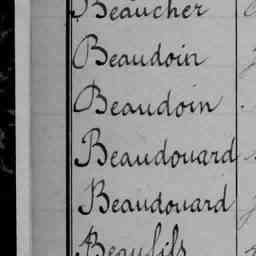 Beaucher
Beaudoin
Beaudoin
Beaudouard
Beaudouard
Beaufils